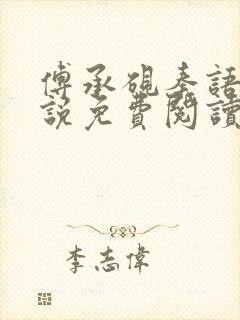 傅承硯秦語
說免費閱讀
李志偉